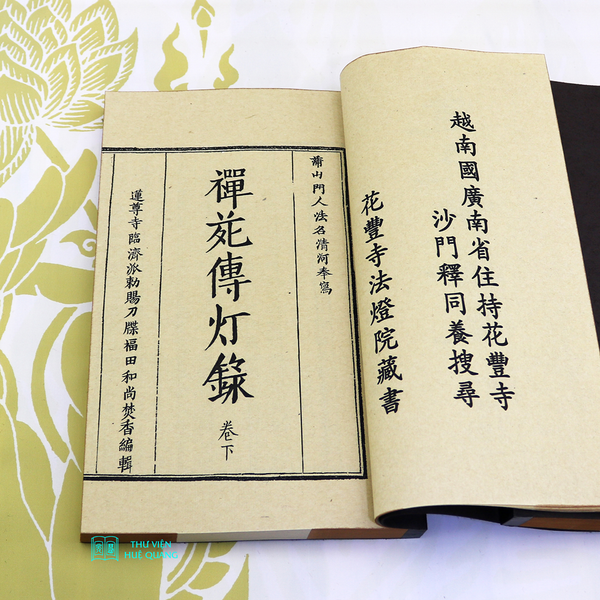 越南國廣南省住持花豐寺
沙門釋同養搜尋
花豐寺法燈院藏書
蕭山門人法名清河奉寫
禪苑傳灯錄
卷下
蓮尊寺臨濟派勅賜刀牒福田和尚焚香編輯
THƯ VIỆN
HUỆ QUANG